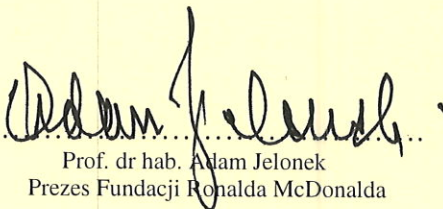 Adam Jelonek
Prof. dr hab. Adam Jelonek
Prezes Fundacji Ronalda McDonalda